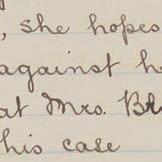 , she hopes
against h
at Mrs. Br
his case